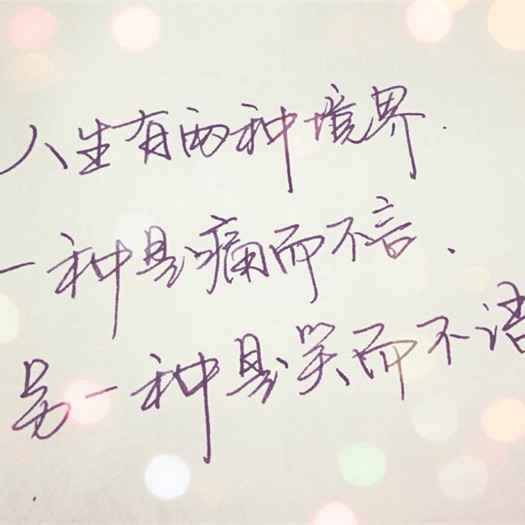 人生有两种境界.
一种是痛而不言、
另一种是笑而不语
.